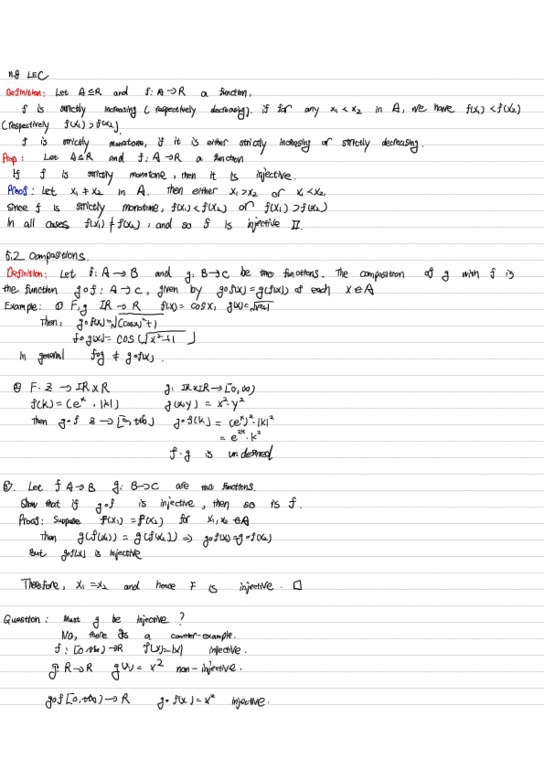 LEC
Definition: Let A⊆R and f: A→R a function.
f is strictly increasing (respectively decreasing). if for any x₁<x₂ in A, we have f(x₁)<f(x₂)
(respectively f(x₁)>f(x₂)).
f is strictly monotone, if it is either strictly increasing or strictly decreasing.
Prop: Let A⊆R and f: A→R a function
If f is strictly monotone, then it is injective.
Proof: Let x₁≠x₂ in A. then either x₁>x₂ or x₁<x₂.
Since f is strictly monotone, f(x₁)<f(x₂) or f(x₁)>f(x₂)
In all cases, f(x₁)≠f(x₂), and so f is injective
5.2 Compositions.
Definition: Let f: A→B and g: B→C be two functions. The composition of g with f is
the function gof: A→C, given by gof(x)=g(f(x)) at each x∈A
Example: ① F,g IR→R f(x)=cosx, g(x)=√x²+1
Then: gof(x)=√(cosx)²+1
fog(x)=cos(√x²+1)
In general fog≠gof(x).
② F: Z→IR×R g: IR×IR→[0,∞)
f(k)=(eᵏ,|k|) g(x,y)=x²·y²
then g∘f Z→[0,+∞) g∘f(k)=(eᵏ)²·|k|²
=e²ᵏ·k²
f∘g is undefined
③. Let f A→B g: B→C are two functions.
Show that if gof is injective, then so is f.
Proof: Suppose f(x₁)=f(x₂) for x₁,x₂∈A
Then g(f(x₁))=g(f(x₂))⇒gof(x₁)=g∘f(x₂)
But gof(x) is injective
Therefore, x₁=x₂ and hence F is injective. □
Question: Must g be injective?
No, there is a counter-example.
f: [0,+∞)→R f(x)=|x| injective.
g: R→R g(x)=x² non-injective.
gof [0,+∞)→R g∘f(x)=x² injective.